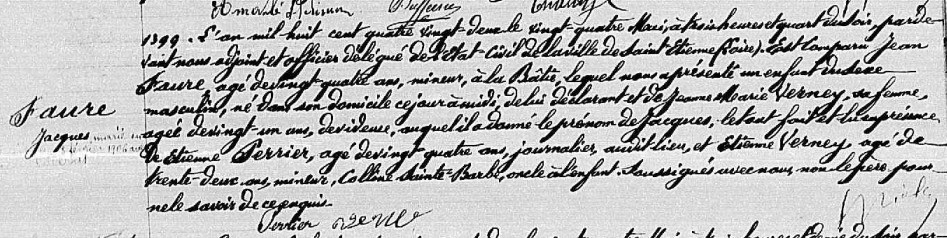 1399. L'an mil huit cent quatre vingt-deux le vingt-quatre Mai, à trois heures et quart du soir, par de-
vant nous adjoint et officier délégué de l'Etat-Civil de la ville de Saint Etienne (Loire). Est Comparu Jean
Faure, agé de vingt quatre ans, mineur, à la Bâtie, lequel nous a présenté un enfant du sexe
masculin, né dans son domicile ce jour à midi, de lui déclarant et de Jeanne Marie Verney, sa femme,
Faure
Jacques
agée de vingt-un ans, devideuse, auquel il a donné le prénom de Jacques, le tout fait et lu en présence
De Etienne Perrier, agé de vingt quatre ans, journalier, audit lieu, et Etienne Verney, agé de
trente-deux ans, mineur, Colline Sainte-Barbe, oncle à l'enfant. Soussignés avec nous, non le père pour
ne le savoir de ce enquis.
Perrier Verne